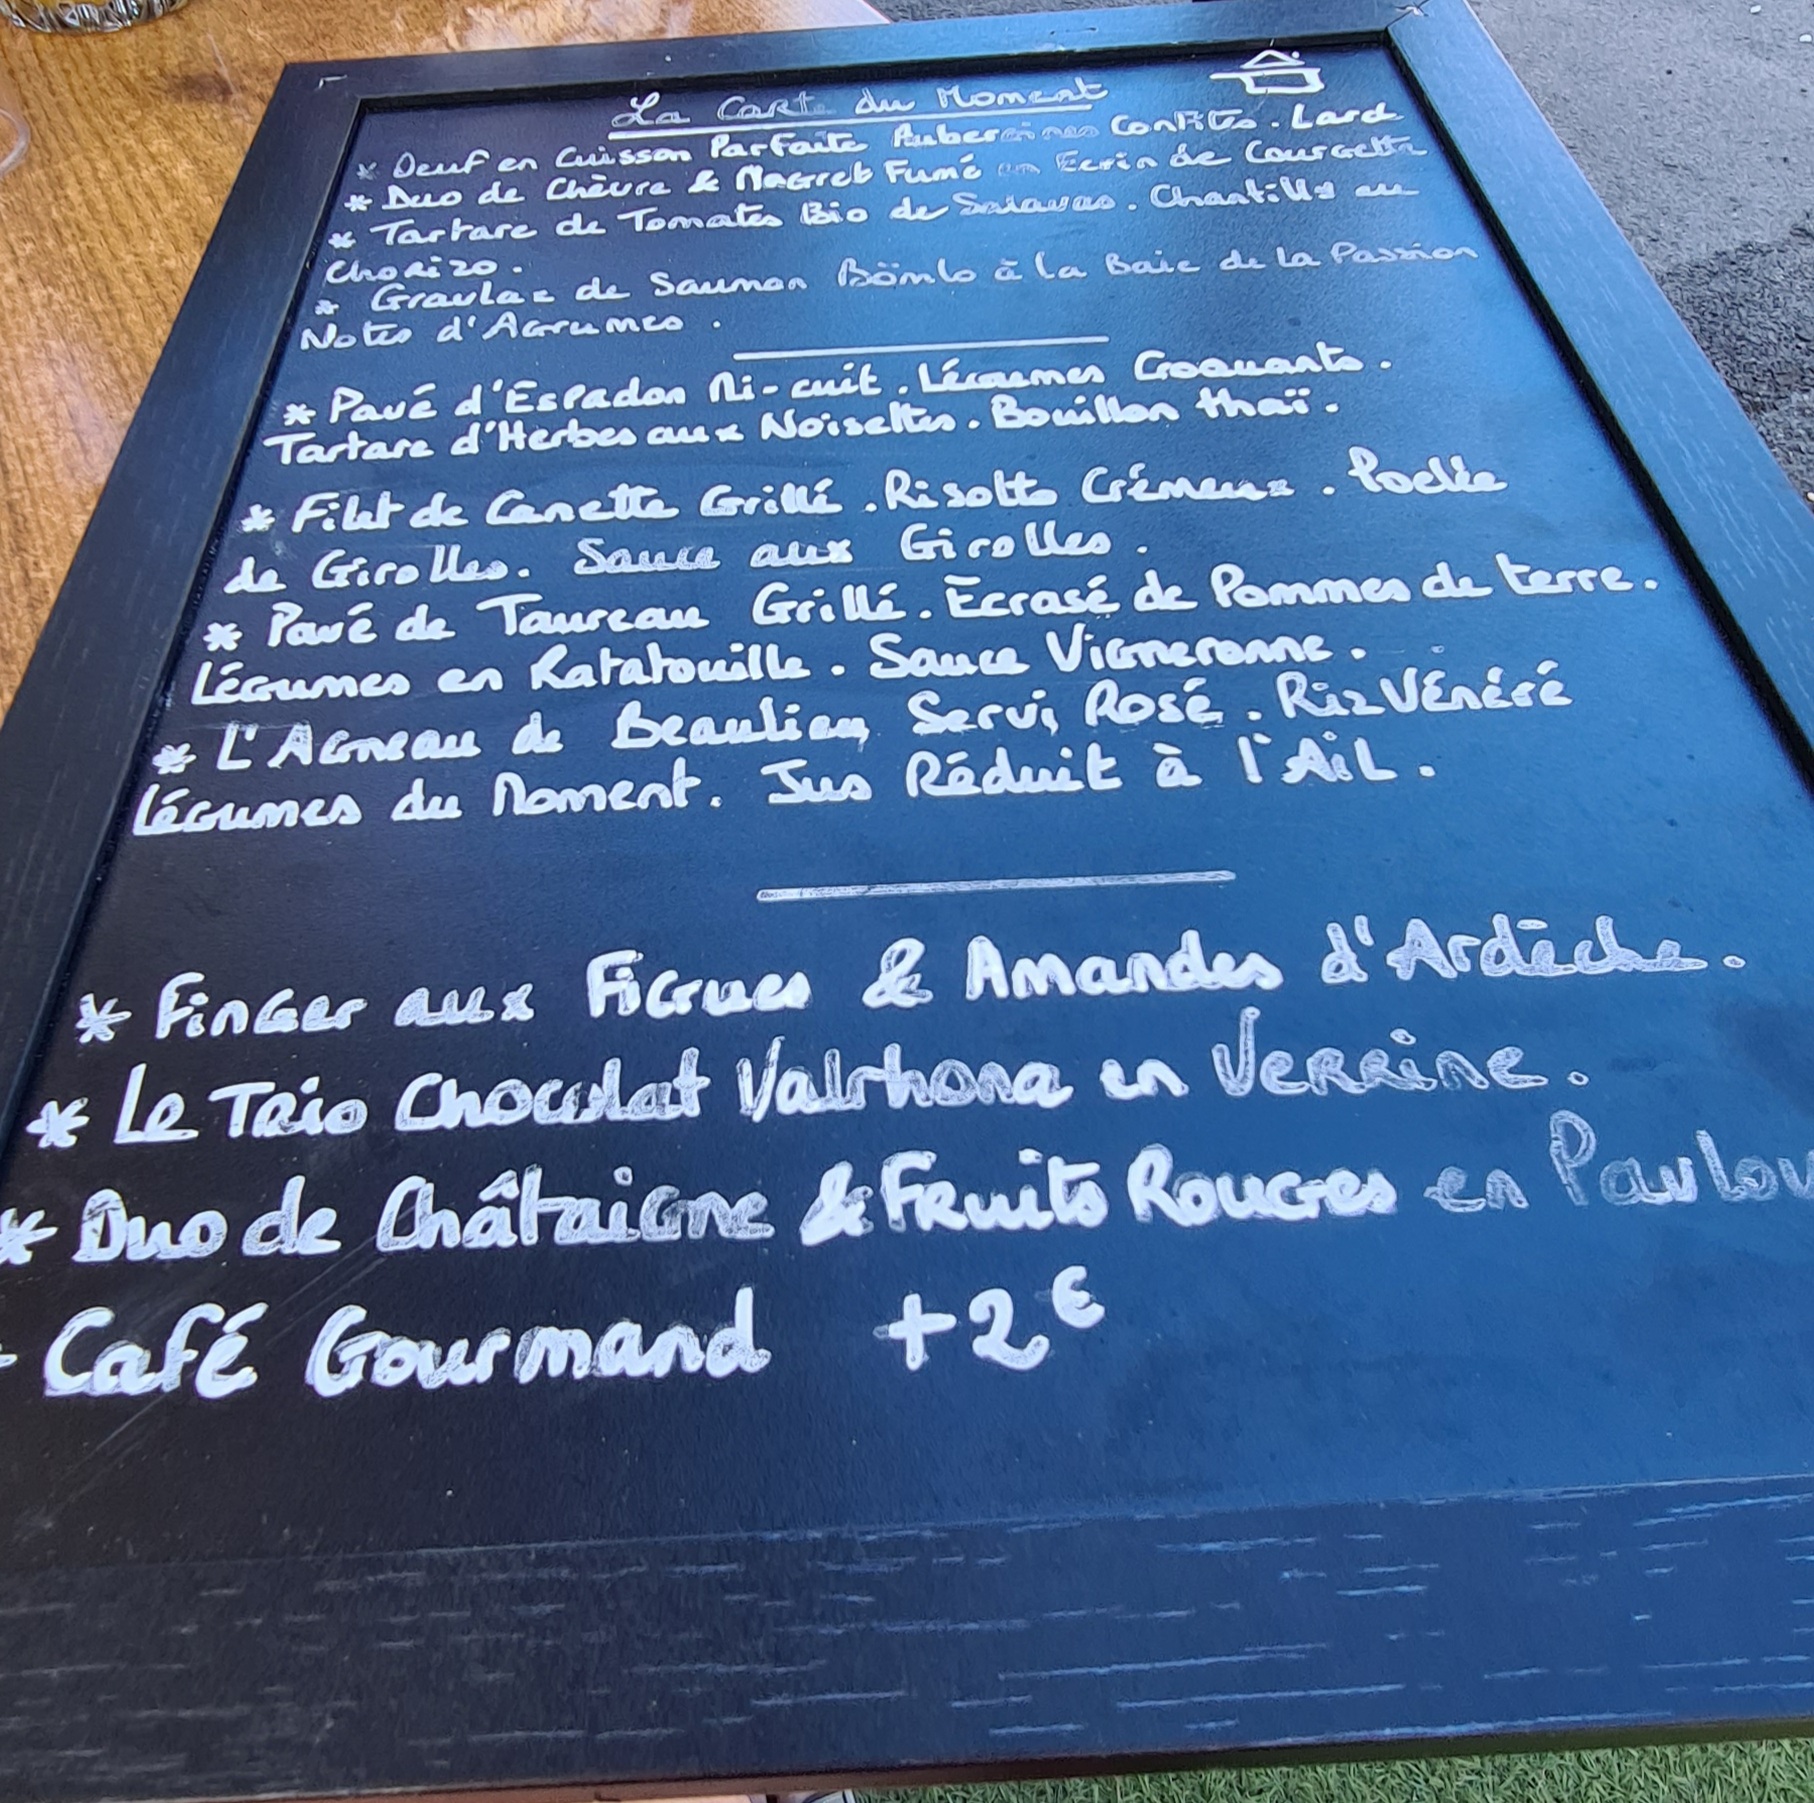 La Carte du Moment
* Oeuf en Cuisson Parfaite Aubergines Confites. Lard
* Duo de Chèvre & Magret Fumé en Ecrin de Courgette
* Tartare de Tomates Bio de Salavas. Chantilly au
Chorizo.
* Gravlax de Saumon Bömlo à la Baie de la Passion
Notes d'Agrumes.
* Pavé d'Espadon Mi-cuit. Légumes Croquants.
Tartare d'Herbes aux Noisettes. Bouillon thaï.
* Filet de Canette Grillé. Risotto Crémeux. Poelée
de Girolles. Sauce aux Girolles.
* Pavé de Taureau Grillé. Ecrasé de Pommes de terre.
Légumes en Ratatouille. Sauce Vigneronne.
* L'Agneau de Beaulieu Servi Rosé. Riz Vénéré
Légumes du Moment. Jus Réduit à l'Ail.
* Finger aux Figues & Amandes d'Ardèche.
* Le Trio Chocolat Valrhona en Verrine.
* Duo de Châtaigne & Fruits Rouges en Pavlov
Café Gourmand +2€